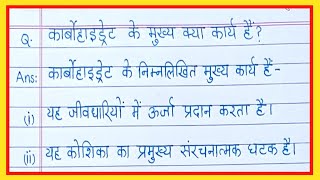 Q. कार्बोहाइड्रेट के मुख्य क्या कार्य हैं?
Ans: कार्बोहाइड्रेट के निम्नलिखित मुख्य कार्य हैं -
(i) यह जीवधारियों में ऊर्जा प्रदान करता है।
(ii) यह कोशिका का प्रमुख्य संरचनात्मक घटक है।